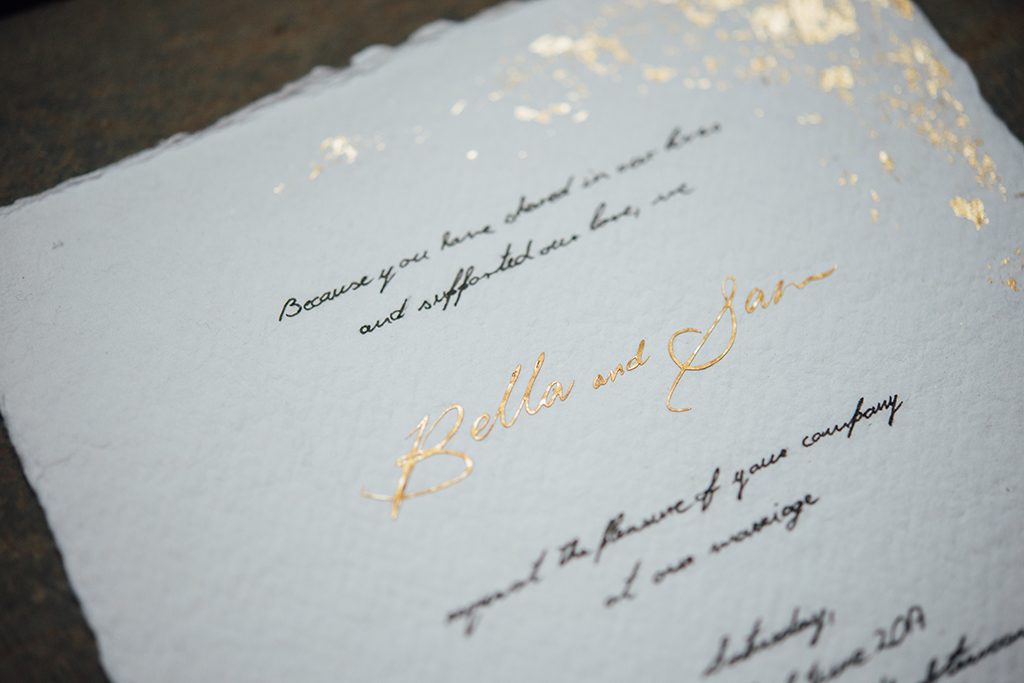 Because you have shared in our lives
and supported our love, we
Bella and Sam
request the pleasure of your company
at our marriage
Saturday,
June 2017